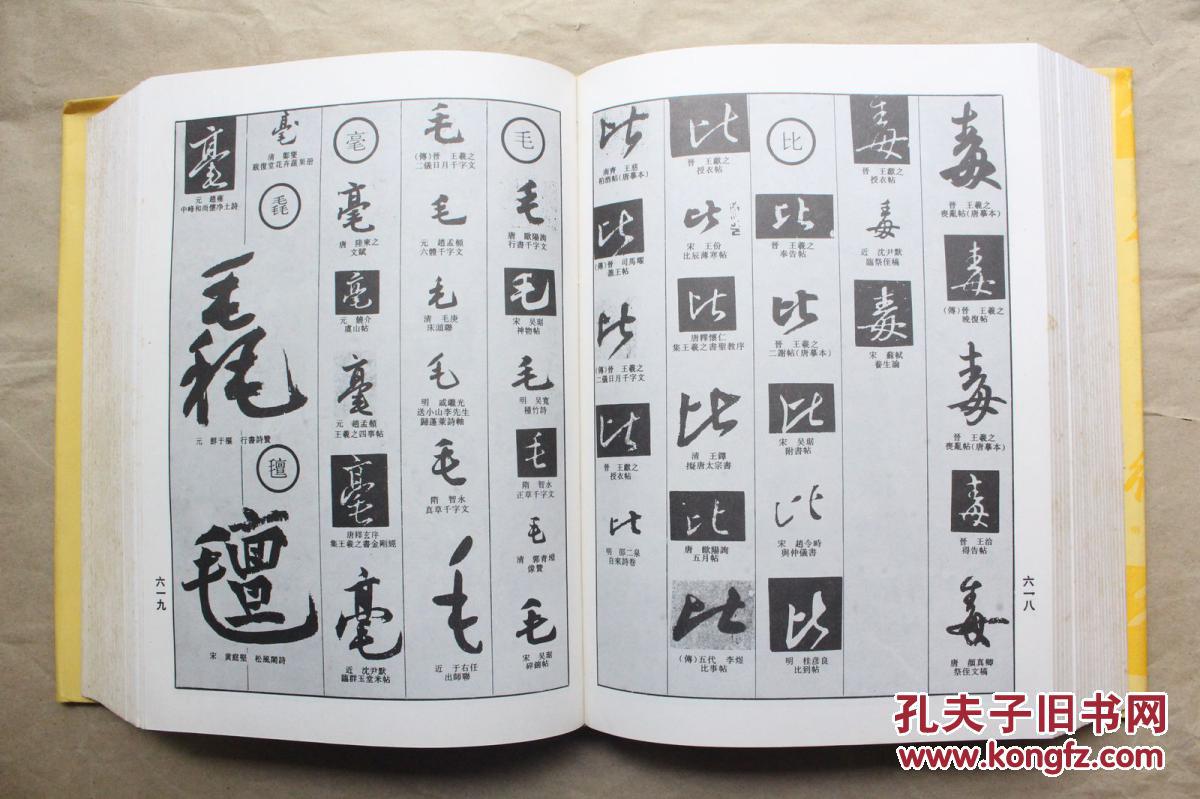 毒
晉 王羲之
喪亂帖(唐摹本)
毒
(傳)晉 王羲之
晚復帖
毒
晉 王羲之
喪亂帖(唐摹本)
毒
晉 王洽
得告帖
毒
唐 顏真卿
祭侄文稿
六一八
毒
晉 王獻之
授衣帖
毒
近 沈尹默
臨祭侄稿
毒
宋 蘇軾
養生論
比
比
晉 王羲之
奉告帖
比
晉 王羲之
二謝帖(唐摹本)
比
宋 吴琚
附書帖
比
宋 趙令畤
與仲儀書
比
明 桂彦良
比到帖
比
晉 王獻之
授衣帖
比
宋 王份
比辰薄寒帖
比
唐釋懷仁
集王羲之書聖教序
比
清 王鐸
擬唐太宗書
比
唐 歐陽詢
五月帖
比
(傳)五代 李煜
比事帖
比
南齊 王慈
柏酒帖(唐摹本)
比
(傳)晉 司馬曜
譙王帖
比
(傳)晉 王羲之
二儀日月千字文
比
晉 王獻之
授衣帖
比
明 邵二泉
自來詩卷
毛
毛
唐 歐陽詢
行書千字文
毛
宋 吴琚
神物帖
毛
明 吴寬
種竹詩
毛
隋 智永
正草千字文
毛
清 郭青
像贊
毛
宋 吴琚
碎錦帖
毛
(傳)晉 王羲之
二儀日月千字文
毛
元 趙孟頫
六體千字文
毛
清 毛庚
床頭聯
毛
明 戚繼光
送小山李先生
歸蓬萊詩軸
毛
隋 智永
真草千字文
毛
近 于右任
出師聯
毫
毫
唐 陸柬之
文賦
毫
元 饒介
廬山帖
毫
元 趙孟頫
王羲之四事帖
毫
唐釋玄序
集王羲之書金剛經
毫
近 沈尹默
臨群玉堂米帖
毫
清 鄭燮
毫
元 趙雍
中峰和尚懷净土詩
毛毛
元 鮮于樞 行書詩贊
氊
氊
宋 黃庭堅 松風閣詩
六一九
孔夫子旧书网
www.kongfz.com